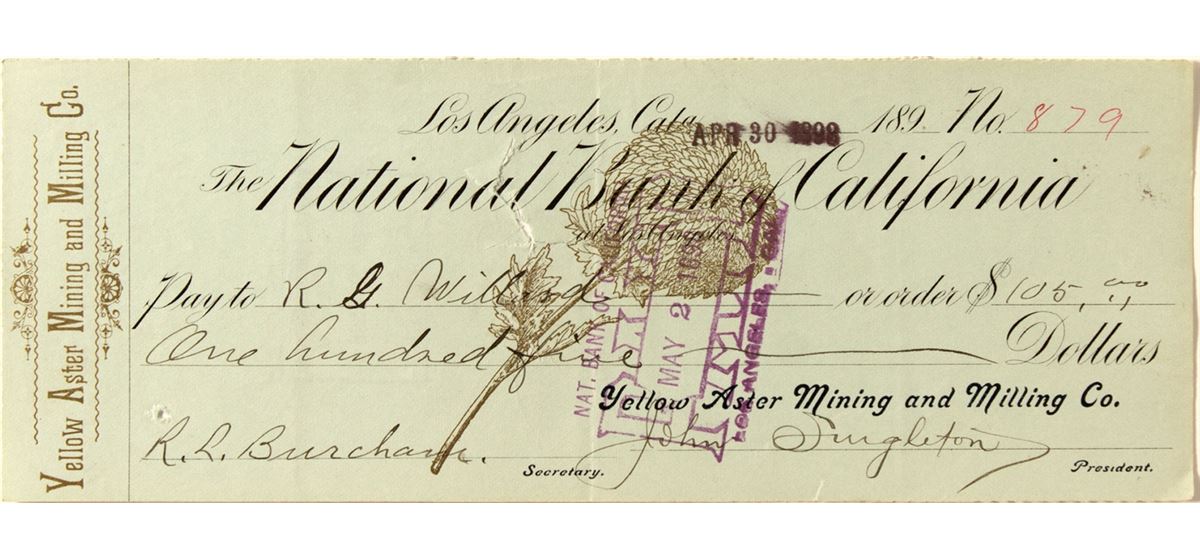 Yellow Aster Mining and Milling Co.
Los Angeles, Cala. APR 30 1898 189 No. 879
The National Bank of California
at Los Angeles
Pay to R. G. Willard or order $105.00
One hundred five Dollars
NAT. BANK OF
PAID
MAY 2 1898
LOS ANGELES, CAL.
Yellow Aster Mining and Milling Co.
R. L. Burcham. Secretary. John Singleton President.